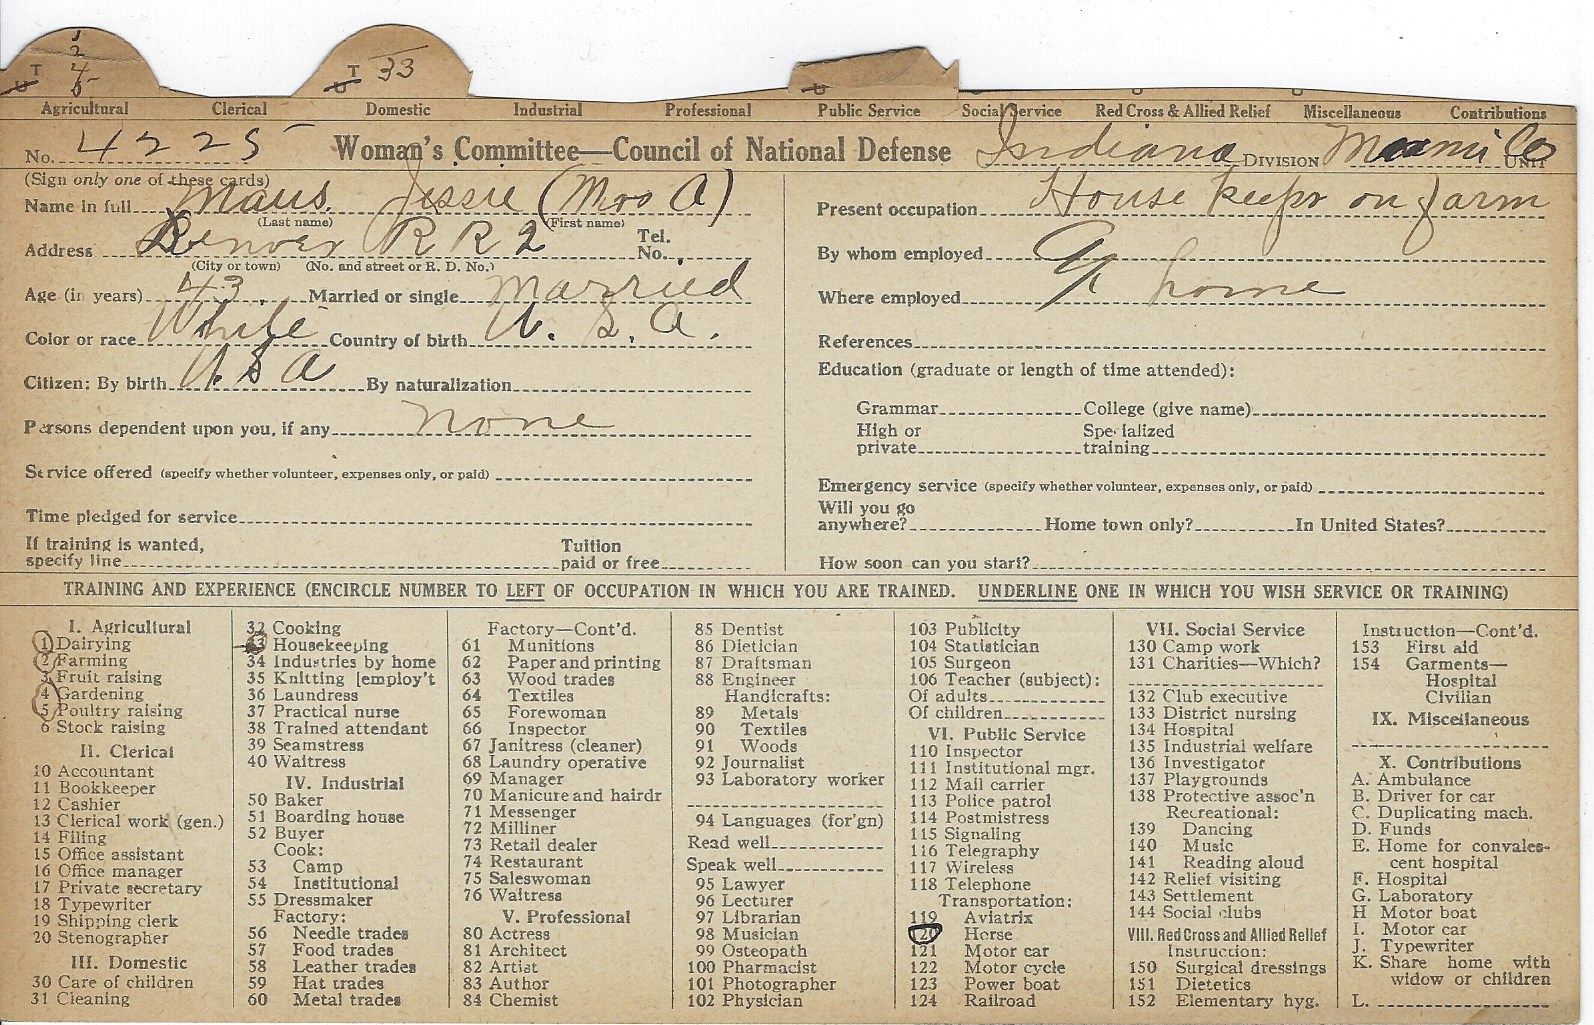 1
2
T 4 T 33
U 5 U U
Agricultural Clerical Domestic Industrial Professional Public Service Social Service Red Cross & Allied Relief Miscellaneous Contributions
No. 4225 Woman's Committee—Council of National Defense Indiana DIVISION Miami Co UNIT
(Sign only one of these cards)
Name in full Maus Jessie (Mrs A)
(Last name) (First name)
Address Denver R R 2 Tel. No.
(City or town) (No. and street or R. D. No.)
Age (in years) 43 Married or single Married
Color or race White Country of birth U. S. A.
Citizen: By birth U.S A By naturalization
Persons dependent upon you, if any none
Service offered (specify whether volunteer, expenses only, or paid)
Time pledged for service
If training is wanted, specify line Tuition paid or free
Present occupation House keepr on farm
By whom employed At
Where employed home
References
Education (graduate or length of time attended):
Grammar College (give name)
High or private Specialized training
Emergency service (specify whether volunteer, expenses only, or paid)
Will you go anywhere? Home town only? In United States?
How soon can you start?
TRAINING AND EXPERIENCE (ENCIRCLE NUMBER TO LEFT OF OCCUPATION IN WHICH YOU ARE TRAINED. UNDERLINE ONE IN WHICH YOU WISH SERVICE OR TRAINING)
I. Agricultural
1 Dairying
2 Farming
3 Fruit raising
4 Gardening
5 Poultry raising
6 Stock raising
II. Clerical
10 Accountant
11 Bookkeeper
12 Cashier
13 Clerical work (gen.)
14 Filing
15 Office assistant
16 Office manager
17 Private secretary
18 Typewriter
19 Shipping clerk
20 Stenographer
III. Domestic
30 Care of children
31 Cleaning
32 Cooking
33 Housekeeping
34 Industries by home
35 Knitting [employ't
36 Laundress
37 Practical nurse
38 Trained attendant
39 Seamstress
40 Waitress
IV. Industrial
50 Baker
51 Boarding house
52 Buyer
Cook:
53 Camp
54 Institutional
55 Dressmaker
Factory:
56 Needle trades
57 Food trades
58 Leather trades
59 Hat trades
60 Metal trades
Factory—Cont'd.
61 Munitions
62 Paper and printing
63 Wood trades
64 Textiles
65 Forewoman
66 Inspector
67 Janitress (cleaner)
68 Laundry operative
69 Manager
70 Manicure and hairdr
71 Messenger
72 Milliner
73 Retail dealer
74 Restaurant
75 Saleswoman
76 Waitress
V. Professional
80 Actress
81 Architect
82 Artist
83 Author
84 Chemist
85 Dentist
86 Dietician
87 Draftsman
88 Engineer
Handicrafts:
89 Metals
90 Textiles
91 Woods
92 Journalist
93 Laboratory worker
94 Languages (for'gn)
Read well
Speak well
95 Lawyer
96 Lecturer
97 Librarian
98 Musician
99 Osteopath
100 Pharmacist
101 Photographer
102 Physician
103 Publicity
104 Statistician
105 Surgeon
106 Teacher (subject):
Of adults
Of children
VI. Public Service
110 Inspector
111 Institutional mgr.
112 Mail carrier
113 Police patrol
114 Postmistress
115 Signaling
116 Telegraphy
117 Wireless
118 Telephone
Transportation:
119 Aviatrix
120 Horse
121 Motor car
122 Motor cycle
123 Power boat
124 Railroad
VII. Social Service
130 Camp work
131 Charities—Which?
132 Club executive
133 District nursing
134 Hospital
135 Industrial welfare
136 Investigator
137 Playgrounds
138 Protective assoc'n
Recreational:
139 Dancing
140 Music
141 Reading aloud
142 Relief visiting
143 Settlement
144 Social clubs
VIII. Red Cross and Allied Relief
Instruction:
150 Surgical dressings
151 Dietetics
152 Elementary hyg.
Instruction—Cont'd.
153 First aid
154 Garments—
Hospital
Civilian
IX. Miscellaneous
X. Contributions
A. Ambulance
B. Driver for car
C. Duplicating mach.
D. Funds
E. Home for convales-
cent hospital
F. Hospital
G. Laboratory
H Motor boat
I. Motor car
J. Typewriter
K. Share home with
widow or children
L.